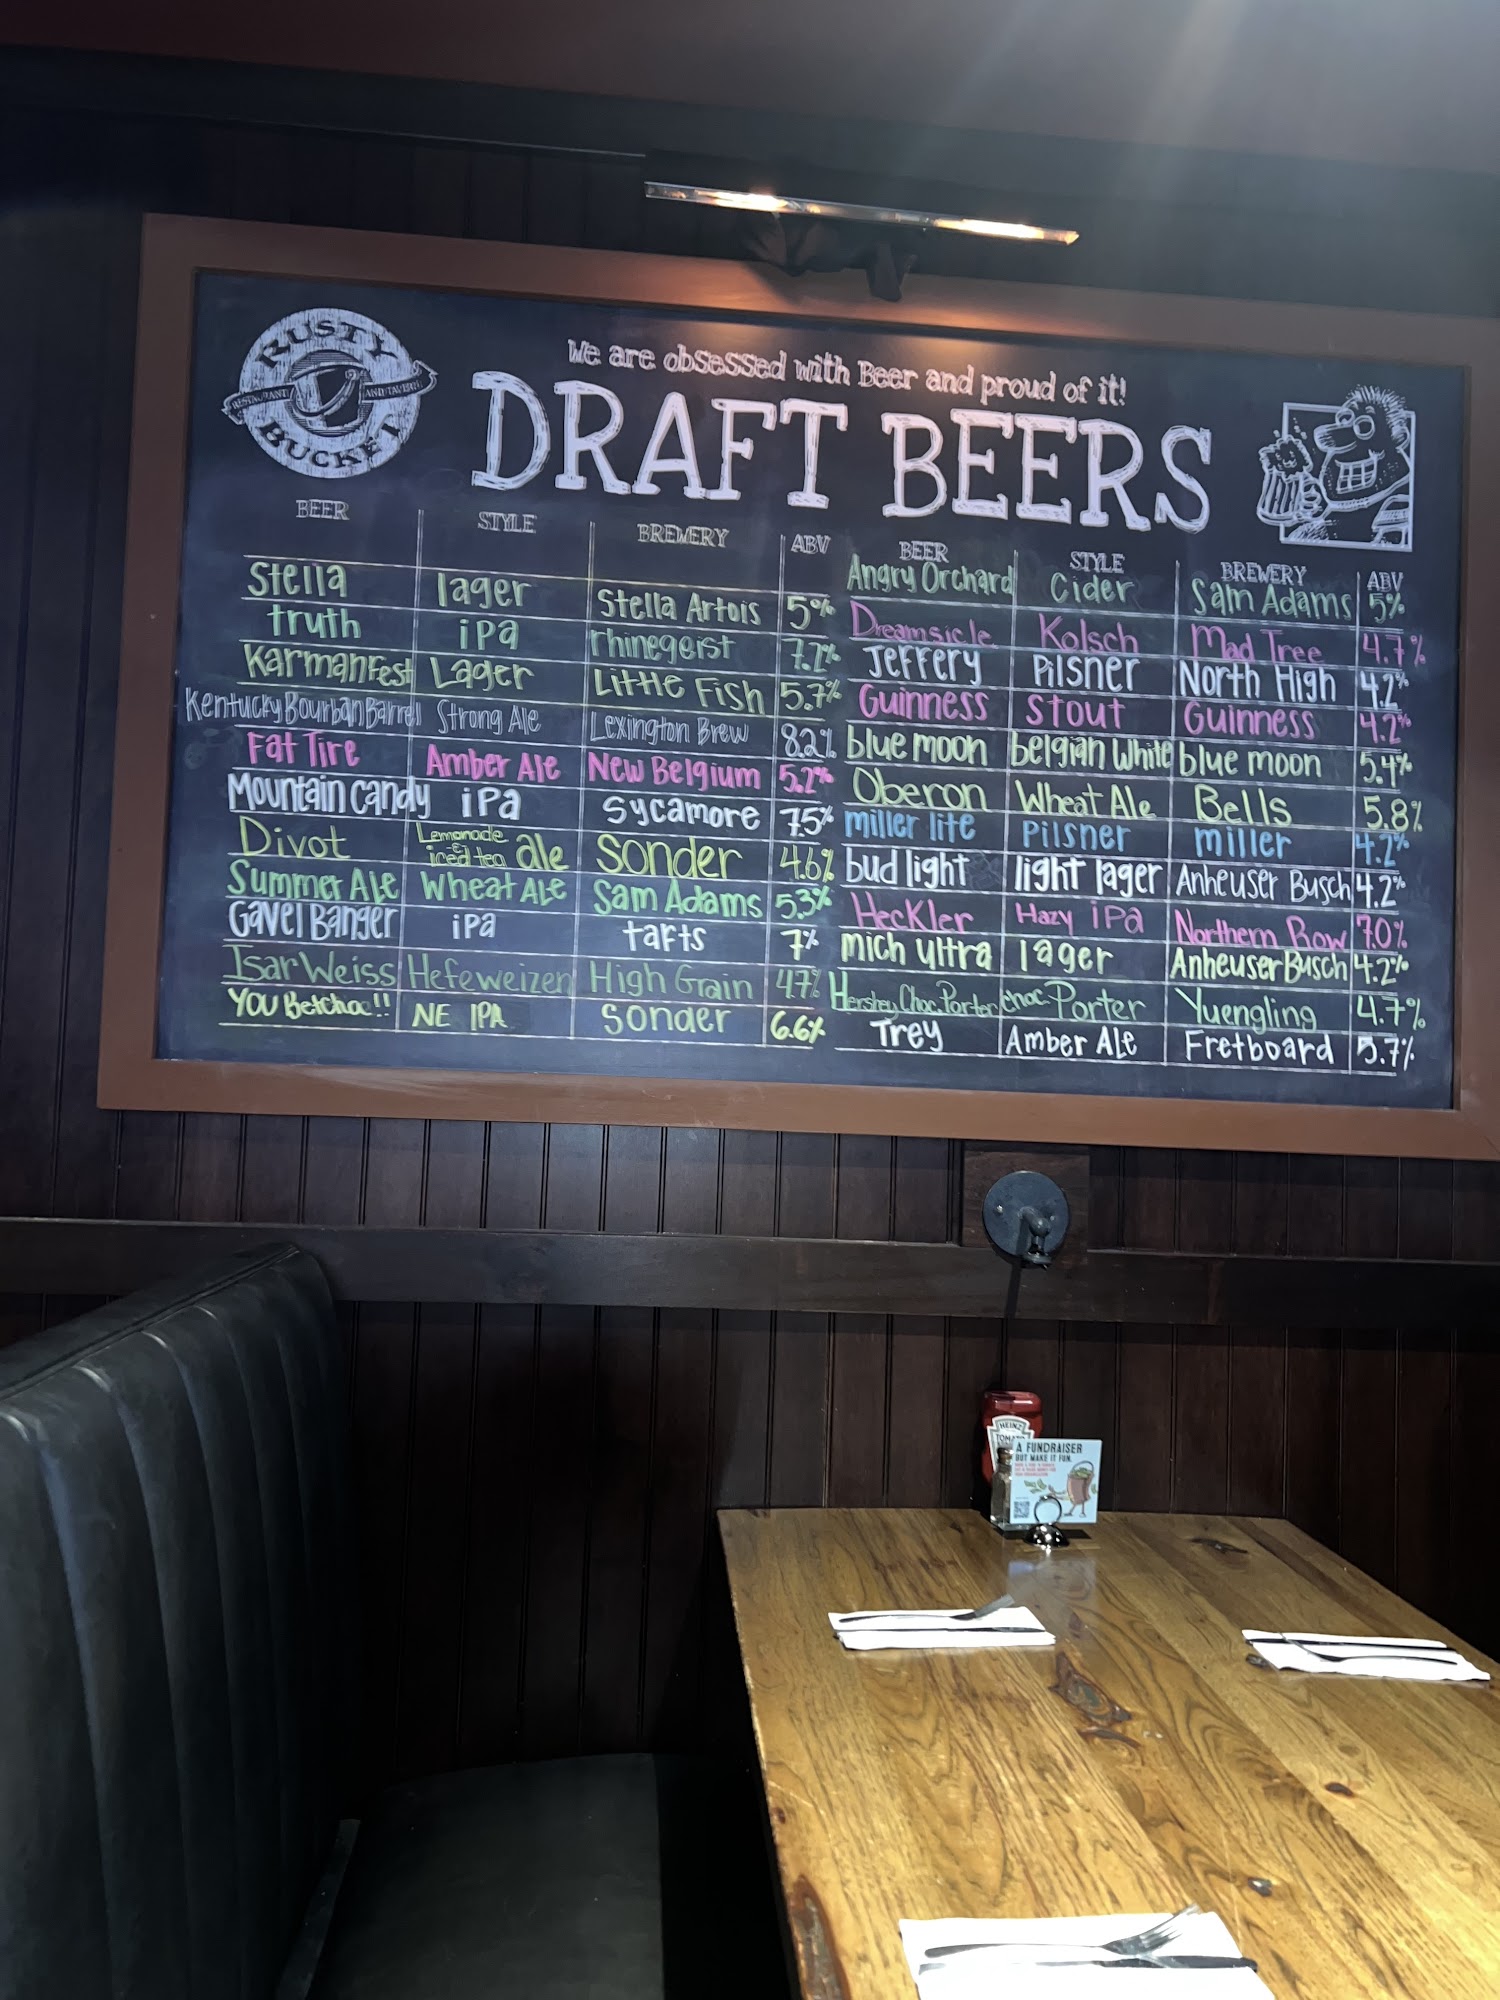 RUSTY
RESTAURANT AND TAVERN
BUCKET
We are obsessed with Beer and proud of it!
DRAFT BEERS
BEER STYLE BREWERY ABV
Stella lager Stella Artois 5%
truth ipa rhinegeist 7.2%
Karmanfest Lager Little Fish 5.7%
Kentucky Bourbon Barrel Strong Ale Lexington Brew 8.2%
Fat Tire Amber Ale New Belgium 5.2%
Mountain Candy iPa Sycamore 7.5%
Divot Lemonade & iced tea ale Sonder 4.6%
Summer Ale Wheat Ale Sam Adams 5.3%
Gavel Banger ipa tafts 7%
Isar Weiss Hefeweizen High Grain 4.7%
YOU Betcha!! NE IPA Sonder 6.6%
BEER STYLE BREWERY ABV
Angry Orchard Cider Sam Adams 5%
Dreamsicle Kolsch Mad Tree 4.7%
Jeffery Pilsner North High 4.2%
Guinness Stout Guinness 4.2%
blue moon belgian White blue moon 5.4%
Oberon Wheat Ale Bells 5.8%
miller lite pilsner miller 4.2%
bud light light lager Anheuser Busch 4.2%
Heckler Hazy ipa Northern Row 7.0%
mich ultra lager Anheuser Busch 4.2%
Hershey Choc. Porter choc. Porter Yuengling 4.7%
Trey Amber Ale Fretboard 5.7%
HEINZ
A FUNDRAISER
BUT MAKE IT FUN.